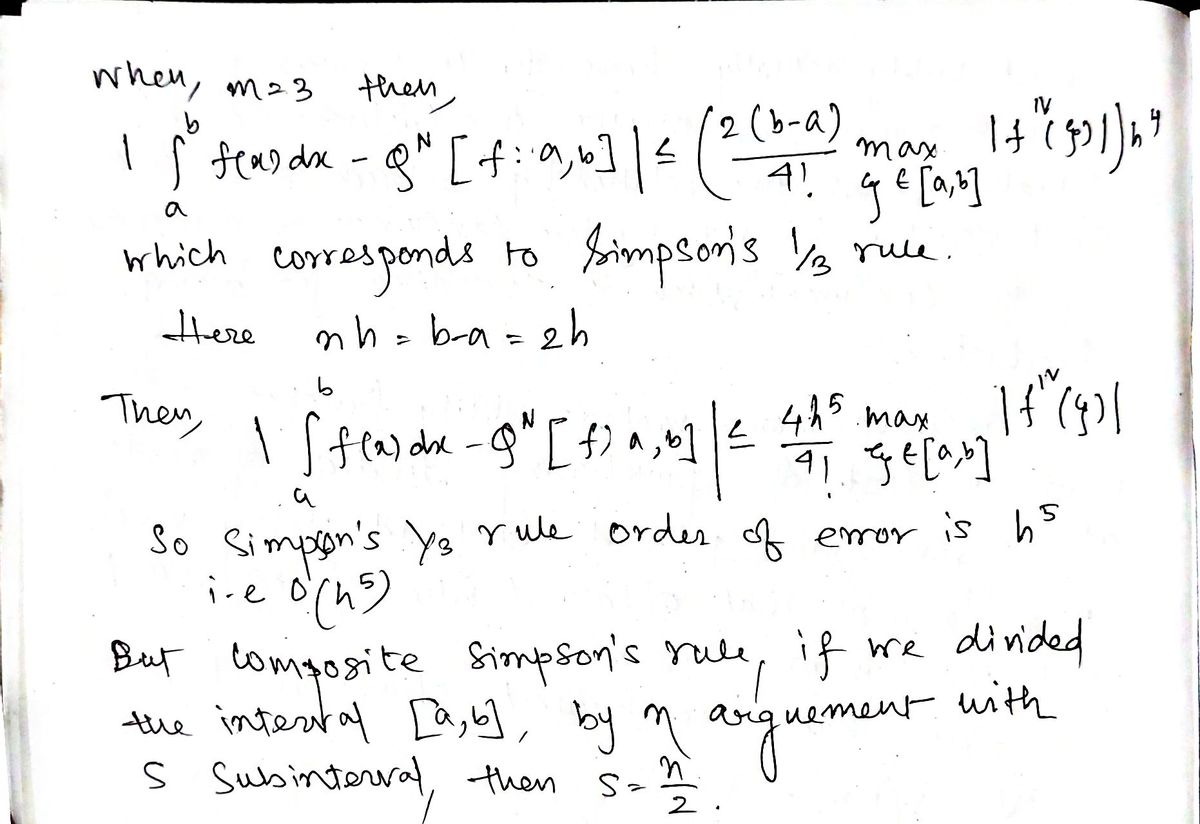 When, m=3 then,
| ∫_a^b f(x) dx - Q^N [f: a,b] | ≤ ( 2(b-a)/4! max_{ξ ∈ [a,b]} |f^{IV}(ξ)| ) h^4
which corresponds to Simpson's 1/3 rule.
Here nh = b-a = 2h
Then, | ∫_a^b f(x) dx - Q^N [f; a,b] | ≤ 4h^5/4! max_{ξ ∈ [a,b]} |f^{IV}(ξ)|
So Simpson's 1/3 rule order of error is h^5
i-e O(h^5)
But Composite Simpson's rule, if we divided
the interval [a,b], by n arguement with
S Subinterval, then S = n/2.